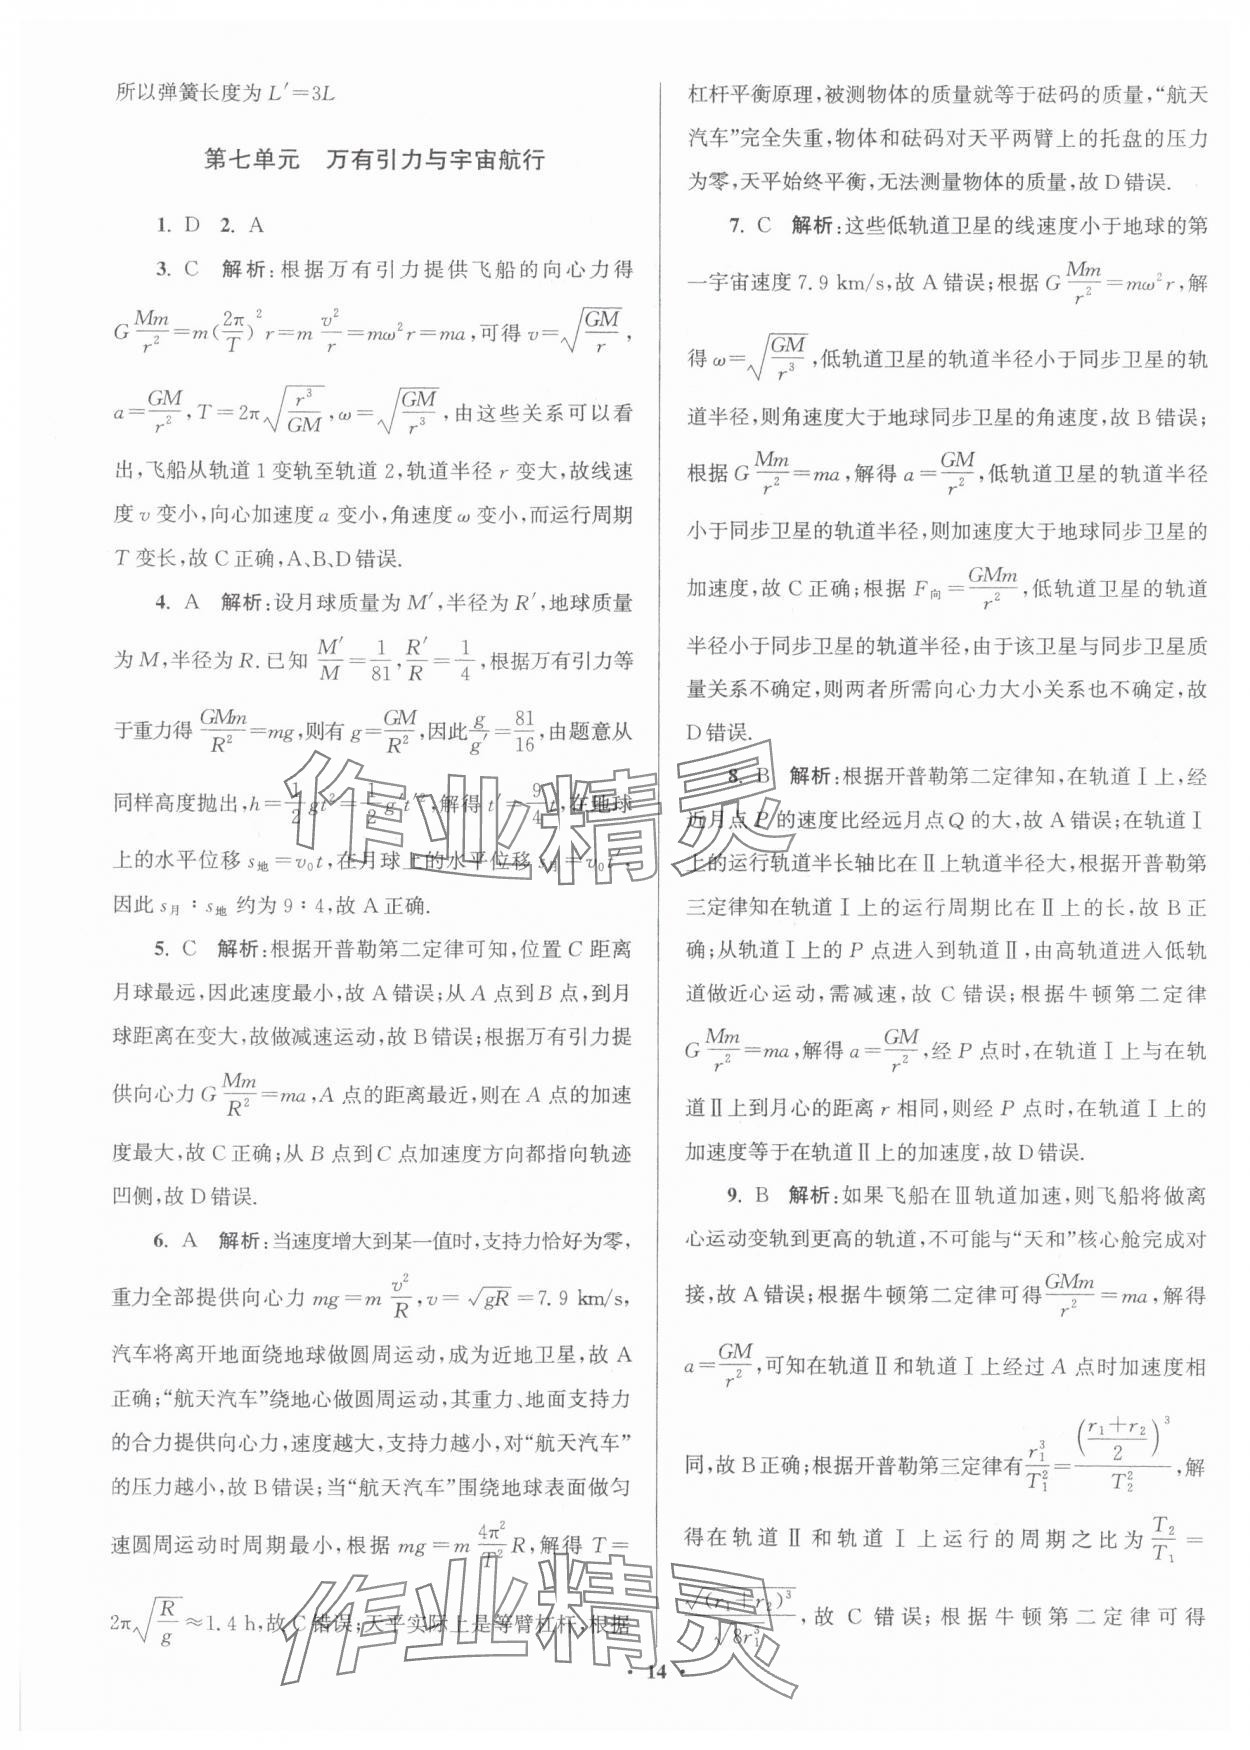 所以弹簧长度为 L′=3L
第七单元　万有引力与宇宙航行
1. D　2. A
3. C　解析:根据万有引力提供飞船的向心力得
G Mm/r² = m(2π/T)² r = m v²/r = mω²r = ma,可得 v = √(GM/r),
a = GM/r², T = 2π√(r³/GM), ω = √(GM/r³),由这些关系可以看
出,飞船从轨道 1 变轨至轨道 2,轨道半径 r 变大,故线速
度 v 变小,向心加速度 a 变小,角速度 ω 变小,而运行周期
T 变长,故 C 正确,A、B、D 错误.
4. A　解析:设月球质量为 M′,半径为 R′,地球质量
为 M,半径为 R.已知 M′/M = 1/81, R′/R = 1/4,根据万有引力等
于重力得 GMm/R² = mg,则有 g = GM/R²,因此 g/g′ = 81/16,由题意从
同样高度抛出,h = 1/2 gt² = 1/2 g′t′²,解得 t′ = 9/4 t,在地球
上的水平位移 s地 = v₀t,在月球上的水平位移 s月 = v₀t′,
因此 s月 : s地 约为 9 : 4,故 A 正确.
5. C　解析:根据开普勒第二定律可知,位置 C 距离
月球最远,因此速度最小,故 A 错误;从 A 点到 B 点,到月
球距离在变大,故做减速运动,故 B 错误;根据万有引力提
供向心力 G Mm/R² = ma,A 点的距离最近,则在 A 点的加速
度最大,故 C 正确;从 B 点到 C 点加速度方向都指向轨迹
凹侧,故 D 错误.
6. A　解析:当速度增大到某一值时,支持力恰好为零,
重力全部提供向心力 mg = m v²/R, v = √(gR) = 7.9 km/s,
汽车将离开地面绕地球做圆周运动,成为近地卫星,故 A
正确;“航天汽车”绕地心做圆周运动,其重力、地面支持力
的合力提供向心力,速度越大,支持力越小,对“航天汽车”
的压力越小,故 B 错误;当“航天汽车”围绕地球表面做匀
速圆周运动时周期最小,根据 mg = m 4π²/T² R,解得 T =
2π√(R/g) ≈ 1.4 h,故 C 错误;天平实际上是等臂杠杆,根据
杠杆平衡原理,被测物体的质量就等于砝码的质量,“航天
汽车”完全失重,物体和砝码对天平两臂上的托盘的压力
为零,天平始终平衡,无法测量物体的质量,故 D 错误.
7. C　解析:这些低轨道卫星的线速度小于地球的第
一宇宙速度 7.9 km/s,故 A 错误;根据 G Mm/r² = mω²r,解
得 ω = √(GM/r³),低轨道卫星的轨道半径小于同步卫星的轨
道半径,则角速度大于地球同步卫星的角速度,故 B 错误;
根据 G Mm/r² = ma,解得 a = GM/r²,低轨道卫星的轨道半径
小于同步卫星的轨道半径,则加速度大于地球同步卫星的
加速度,故 C 正确;根据 F向 = GMm/r²,低轨道卫星的轨道
半径小于同步卫星的轨道半径,由于该卫星与同步卫星质
量关系不确定,则两者所需向心力大小关系也不确定,故
D 错误.
8. B　解析:根据开普勒第二定律知,在轨道 Ⅰ 上,经
近月点 P 的速度比经远月点 Q 的大,故 A 错误;在轨道 Ⅰ
上的运行轨道半长轴比在 Ⅱ 上轨道半径大,根据开普勒第
三定律知在轨道 Ⅰ 上的运行周期比在 Ⅱ 上的长,故 B 正
确;从轨道 Ⅰ 上的 P 点进入到轨道 Ⅱ,由高轨道进入低轨
道做近心运动,需减速,故 C 错误;根据牛顿第二定律
G Mm/r² = ma,解得 a = GM/r²,经 P 点时,在轨道 Ⅰ 上与在轨
道 Ⅱ 上到月心的距离 r 相同,则经 P 点时,在轨道 Ⅰ 上的
加速度等于在轨道 Ⅱ 上的加速度,故 D 错误.
9. B　解析:如果飞船在 Ⅲ 轨道加速,则飞船将做离
心运动变轨到更高的轨道,不可能与“天和”核心舱完成对
接,故 A 错误;根据牛顿第二定律可得 GMm/r² = ma,解得
a = GM/r²,可知在轨道 Ⅱ 和轨道 Ⅰ 上经过 A 点时加速度相
同,故 B 正确;根据开普勒第三定律有 r₁³/T₁² = ((r₁+r₂)/2)³/T₂²,解
得在轨道 Ⅱ 和轨道 Ⅰ 上运行的周期之比为 T₂/T₁ =
√(r₁+r₂)³/√8r₁³,故 C 错误;根据牛顿第二定律可得
· 14 ·
作业精灵
作业精灵